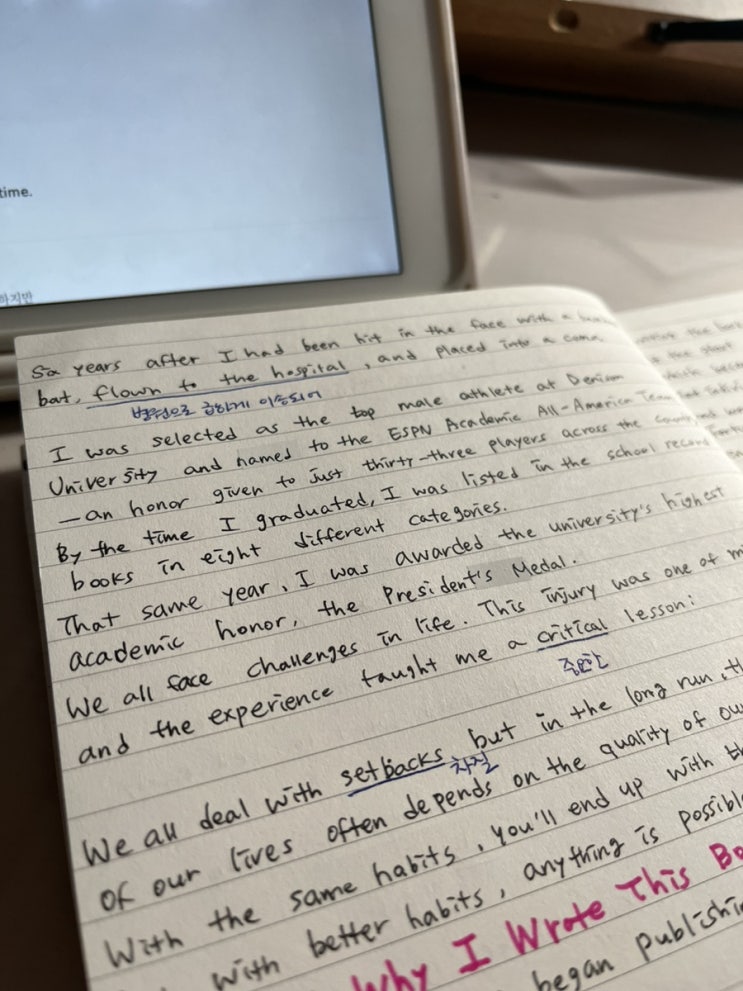 time.
하지만
Six years after I had been hit in the face with a
bat, flown to the hospital, and placed into a coma
병원으로 급하게 이송되어
I was selected as the top male athlete at Denison
University and named to the ESPN Academic All-America Team
—an honor given to just thirty-three players across the
By the time I graduated, I was listed in the school record
books in eight different categories.
That same year, I was awarded the university's highest
academic honor, the President's Medal.
We all face challenges in life. This injury was one of
and the experience taught me a critical lesson:
중요한
We all deal with setbacks, but in the long run, th
좌절
of our lives often depends on the quality of ou
With the same habits, you'll end up with th
with better habits, anything is possible
Why I Wrote This Bo
began publishin